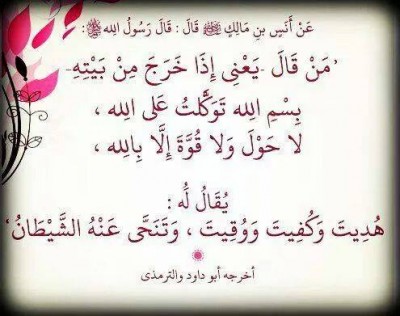 عَنْ أَنَسِ بنِ مَالِكٍ ﷺ قَالَ : قَالَ رَسُولُ اللهِ ﷺ :
’مَنْ قَالَ -يَعْنِى إِذَا خَرَجَ مِنْ بَيْتِهِ-
بِسْمِ اللهِ تَوَكَّلْتُ عَلَى اللهِ ،
لا حَوْلَ وَلا قُوَّةَ إِلَّا بِاللهِ ،
يُقَالُ لَهُ :
هُدِيتَ وَكُفِيتَ وَوُقِيتَ ، وَتَنَحَّى عَنْهُ الشَّيْطَانُ‘
أخرجه أبو داود والترمذى